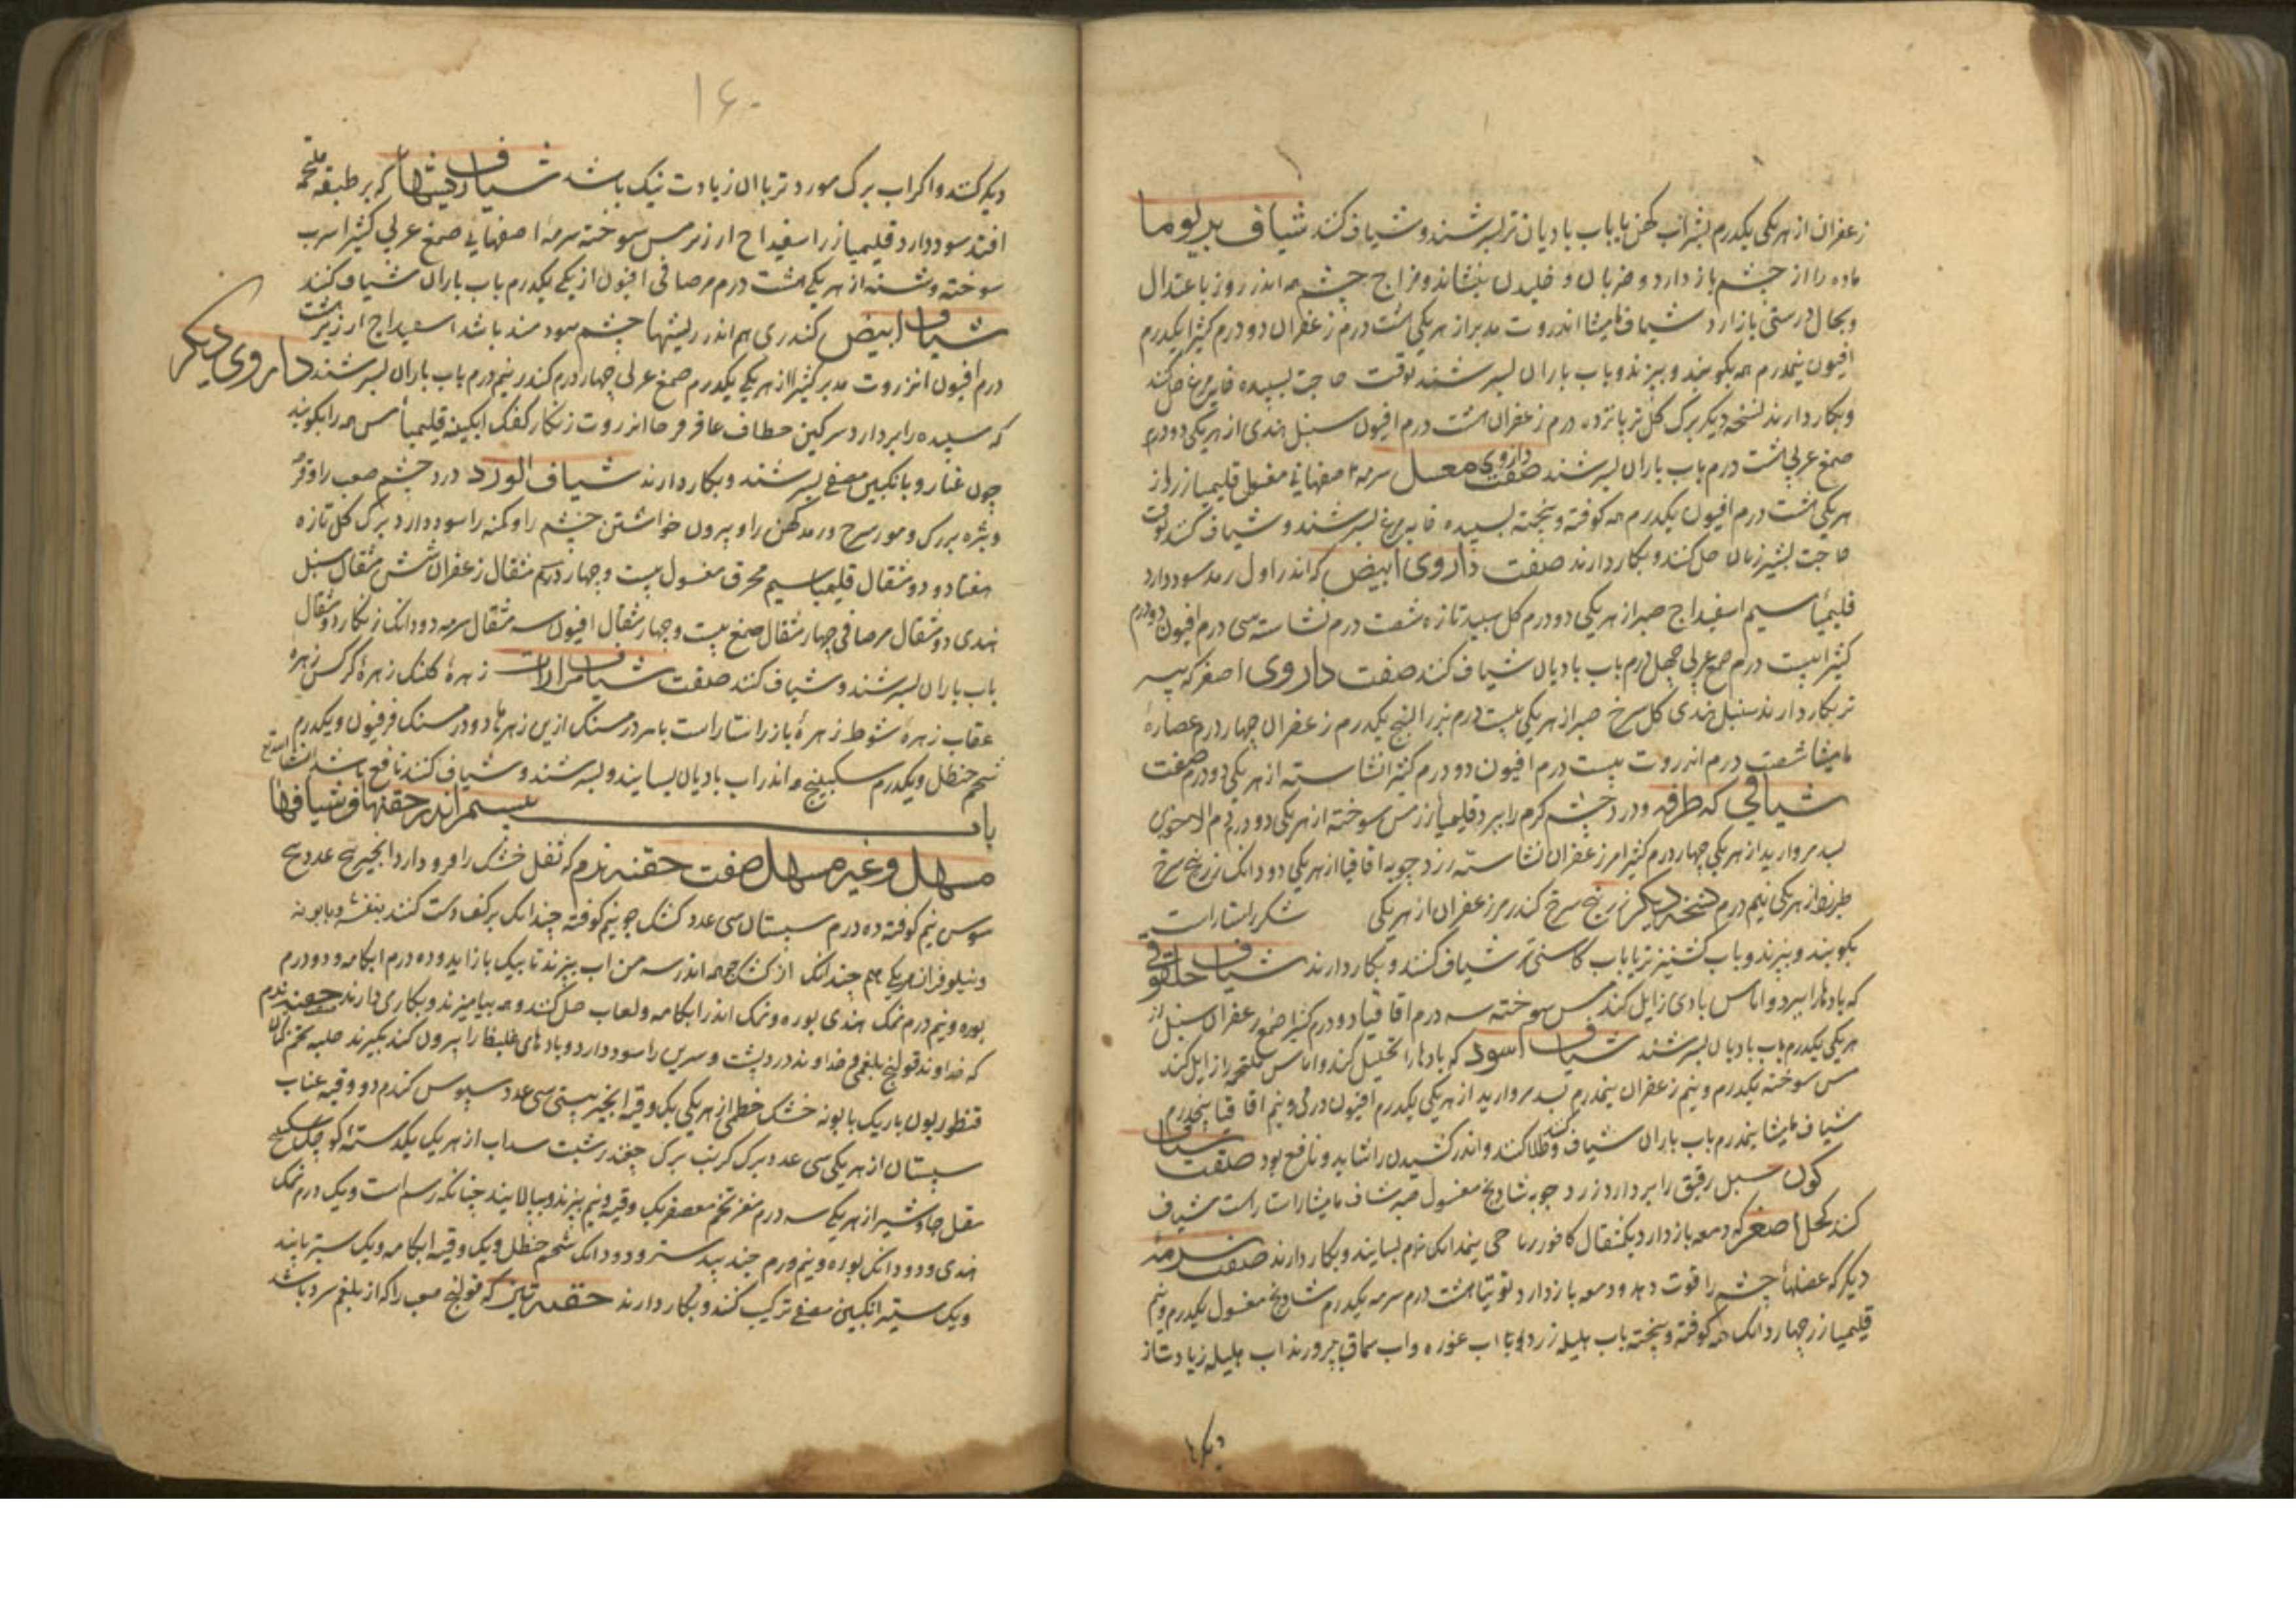 زعفران از هر یکی یکدرم بشراب کهن یا باب بادیان تر بسرشند و شیاف کنند شیاف بدیوما
ماده را از چشم باز دارد و ضربان و خلیدن بنشاند و مزاج چشم هم اندر روز باعتدال
و بحال درستی باز ارد شیاف مامیثا انزروت مدبر از هر یکی هشت درم زعفران دو درم کثیرا یکدرم
افیون نیمدرم همه بکوبند و ببیزند و باب باران بسرشند بوقت حاجت بسپیده خایه مرغ حل کنند
و بکار دارند نسخه دیکر برک کل تر پانزده درم زعفران هشت درم افیون سنبل هندی از هر یکی دو درم
صمغ عربی هشت درم باب باران بسرشند صفت داروی معسل سرمه اصفهانی مغسول قلیمیا زر از
هر یکی هشت درم افیون یکدرم همه کوفته و بیخته بسپیده خایه مرغ بسرشند و شیاف کنند بوقت
حاجت بشیر زنان حل کنند و بکار دارند صفت داروی ابیض که اندر اول رمد سود دارد
قلیمیا سیم اسفیداج صبر از هر یکی دو درم کل سپید تازه شصت درم نشاسته سی درم افیون دو درم
کثیرا بیست درم صمغ عربی چهل درم باب بادیان شیاف کنند صفت داروی اصفر که پیه
تر بکار دارند سنبل هندی کل سرخ صبر از هر یکی بیست درم بزرالبنج یکدرم زعفران چهار درم عصارهٔ
مامیثا شصت درم انزروت بیست درم افیون دو درم کثیرا نشاسته از هر یکی دو درم صفت
شیافی که طرفه و درد چشم کرم را ببرد قلیمیا زر مس سوخته از هر یکی دو درم دم الاخوین
بسد مروارید از هر یکی چهار درم کثیرا مر زعفران نشاسته زرد چوبه اقاقیا از هر یکی دو دانک زرنیخ سرخ
طبرزد از هر یکی نیم درم نسخه دیکر زرنیخ سرخ کندر مر زعفران از هر یکی شکر راستا راست
بکوبند و ببیزند و باب کشنیز تر یا باب کاسنی تر شیاف کنند و بکار دارند شیاف حلقوفی
که بادها را ببرد و اماس بادی زایل کند مس سوخته سه درم اقاقیا دو درم کثیرا صمغ زعفران سنبل از
هر یکی یکدرم باب بادیان بسرشند شیاف اسود که بادها را تحلیل کند و اماس ملتحمه را زایل کند
مس سوخته یکدرم و نیم زعفران نیمدرم بسد مروارید از هر یکی یکدرم افیون درمی و نیم اقاقیا پنجدرم
شیاف مامیثا پنجدرم باب باران شیاف کنند و طلا کنند و اندر کشیدن را شاید و نافع بود صفت شیاف
کون سبل رقیق را بردارد زرد چوبه شادنج مغسول صبر شاف مامیثا راستا راست شیاف
کنند کحل اصغر که دمعه باز دارد یکمثقال کافور رباحی نیمدانک نرم بسایند و بکار دارند صفت سرمهٔ
دیکر که عضلهاء چشم را قوت دهد و دمعه باز دارد توتیا هشت درم سرمه یکدرم شادنج مغسول یکدرم و نیم
قلیمیا زر چهار دانک همه کوفته و بیخته باب هلیله زرد و یا اب غوره و اب سماق بپرورند اب هلیله زیادت از
دیکرها
۱۶۰
دیکر کنند و اکر اب برک مورد تر با ان زیادت نیک باشد شیاف ریشها که بر طبقه ملتحمه
افتد سود دارد قلیمیا زر اسفیداج ارزیز مس سوخته سرمهٔ اصفهانی صمغ عربی کثیرا سرب
سوخته و شسته از هر یکی هشت درم مر صافی افیون از یکی یکدرم باب باران شیاف کنند
شیاف ابیض کندری هم اندر ریشهاء چشم سودمند باشد اسفیداج ارزیز هشت
درم افیون انزروت مدبر کثیرا از هر یکی یکدرم صمغ عربی چهار درم کندر نیم درم باب باران بسرشند داروی دیکر
که سپیده را بردارد سرکین خطاف عاقرقرحا انزروت زنکار کفک ابکینه قلیمیا مس همه را بکوبند
چون غبار و بانکبین مصفی بسرشند و بکار دارند شیاف الورد درد چشم صعب را و قرحه
و بثره بزرک و مورسرج و رمد کهن را و بیرون خواستن چشم را و کمنه را سود دارد برک کل تازه
هفتاد و دو مثقال قلیمیا سیم محرق مغسول بیست و چهار درم مثقال زعفران شش مثقال سنبل
هندی دو مثقال مر صافی چهار مثقال صمغ بیست و چهار مثقال افیون سه مثقال سرمه دو دانک زنکار دو مثقال
باب باران بسرشند و شیاف کنند صفت شیاف مرارات زهرهٔ کلنک زهرهٔ کرکس زهرهٔ
عقاب زهرهٔ شبوط زهرهٔ باز راستا راست با هر درمسنک ازین زهرها دو درمسنک فرفیون و یکدرم
شحم حنظل و یکدرم سکبینج همه اندر اب بادیان بسایند و بسرشند و شیاف کنند نافع باشد انشا الله تع
باب بیستم اندر حقنها و شیافها
مسهل و غیر مسهل صفت حقنه نرم که ثفل خشک را فرود ارد انجیر پنج عدد بیخ
سوس نیم کوفته ده درم سپستان سی عدد کشک جو نیم کوفته چندانک بر کف دست کنند بنفشه و بابونه
و نیلوفر از هر یکی هم چندانک از کشک جو همه اندر سه من اب بپزند تا بیک باز اید و ده درم ابکامه و دو درم
بوره و نیم درم نمک هندی بوره و نمک اندر ابکامه و لعاب حل کنند و همه بیامیزند و بکار می دارند حقنه نرم
که خداوند قولنج بلغمی و خداوند درد پشت و سرین را سود دارد و بادهای غلیظ را بیرون کند بکیرند حلبه تخم کتان
قنطوریون باریک بابونه خشک خطمی از هر یکی یک وقیه انجیر بستی سی عدد سبوس کندم دو وقیه عناب
سپستان از هر یکی سی عدد برک کرنب برک چغندر شبت سداب از هر یک یکدسته کوچک سکبینج
مقل جاوشیر از هر یکی سه درم مغز تخم معصفر یک وقیه و نیم بپزند و بپالایند چنانکه رسم است و یک درم نمک
هندی و دو دانک بوره و نیم درم جند بیدستر و دو دانک شحم حنظل و یک وقیه ابکامه و یک ستیر پانید
و یک ستیر انکبین مصفی ترکیب کنند و بکار دارند حقنه تیز که قولنج صعب را که از بلغم سرد باشد